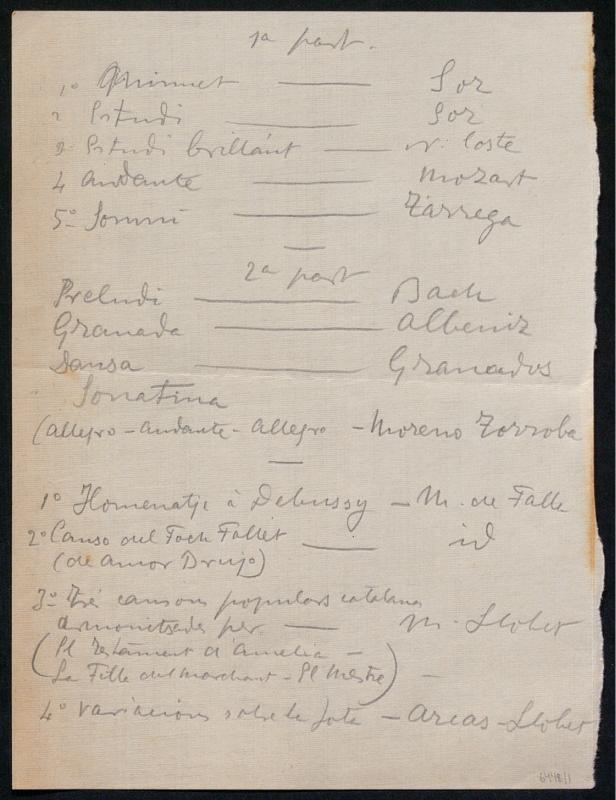 1a part.
1º Minuet — Sor
2 Estudi — Sor
3 Estudi brillánt — N. Coste
4 Andante — Mozart
5º Somni — Tárrega
2a part
Preludi — Bach
Granada — Albeniz
Dansa — Granados
Sonatina
(allegro - andante - allegro — Moreno Torroba
1º Homenatje à Debussy — M. de Falla
2º Canso del Foch Follet — id
(de amor Brujo)
3º Tres cansons populars catalanas
armonitsades per — M. Llobet
(El Testament d Amelia —
La Filla del marchant - El Mestre) —
4º Variacions sobre la Jota — Arcas - Llobet